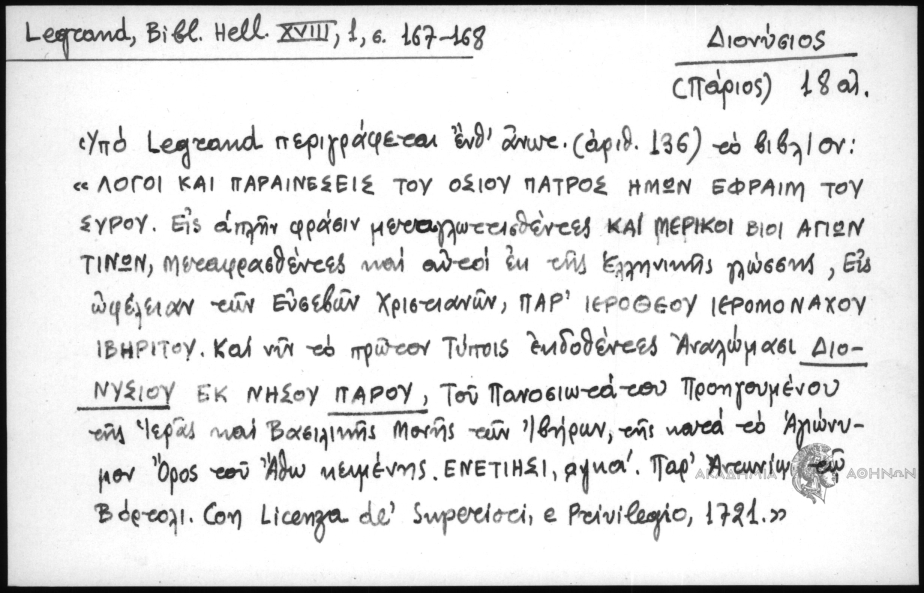 Legrand, Bibl. Hell. XVIII, 1, σ. 167-168
Διονύσιος
(Πάριος) 18 αἰ.
Ὑπὸ Legrand περιγράφεται ἔνθ' ἄνωτ. (ἀριθ. 136) τὸ βιβλίον:
« ΛΟΓΟΙ ΚΑΙ ΠΑΡΑΙΝΕΣΕΙΣ ΤΟΥ ΟΣΙΟΥ ΠΑΤΡΟΣ ΗΜΩΝ ΕΦΡΑΙΜ ΤΟΥ
ΣΥΡΟΥ. Εἰς ἁπλῆν φράσιν μεταγλωττισθέντες ΚΑΙ ΜΕΡΙΚΟΙ ΒΙΟΙ ΑΓΙΩΝ
ΤΙΝΩΝ, Μεταφρασθέντες καὶ αὐτοὶ ἐκ τῆς Ἑλληνικῆς γλώσσης, Εἰς
ὠφέλειαν τῶν Εὐσεβῶν Χριστιανῶν, ΠΑΡ' ΙΕΡΟΘΕΟΥ ΙΕΡΟΜΟΝΑΧΟΥ
ΙΒΗΡΙΤΟΥ. Καὶ νῦν τὸ πρῶτον Τύποις ἐκδοθέντες Ἀναλώμασι ΔΙΟ-
ΝΥΣΙΟΥ ΕΚ ΝΗΣΟΥ ΠΑΡΟΥ, Τοῦ Πανοσιωτάτου Προηγουμένου
τῆς Ἱερᾶς καὶ Βασιλικῆς Μονῆς τῶν Ἰβήρων, τῆς κατὰ τὸ Ἁγιώνυ-
μον Ὄρος τοῦ Ἄθω κειμένης. ΕΝΕΤΙΗΣΙ, αψκα'. Παρ' Ἀντωνίῳ τῷ
ΑΚΑΔΗΜΙΑ ΑΘΗΝΩΝ
Βόρτολι. Con Licenza de' Superiori, e Privilegio, 1721.»